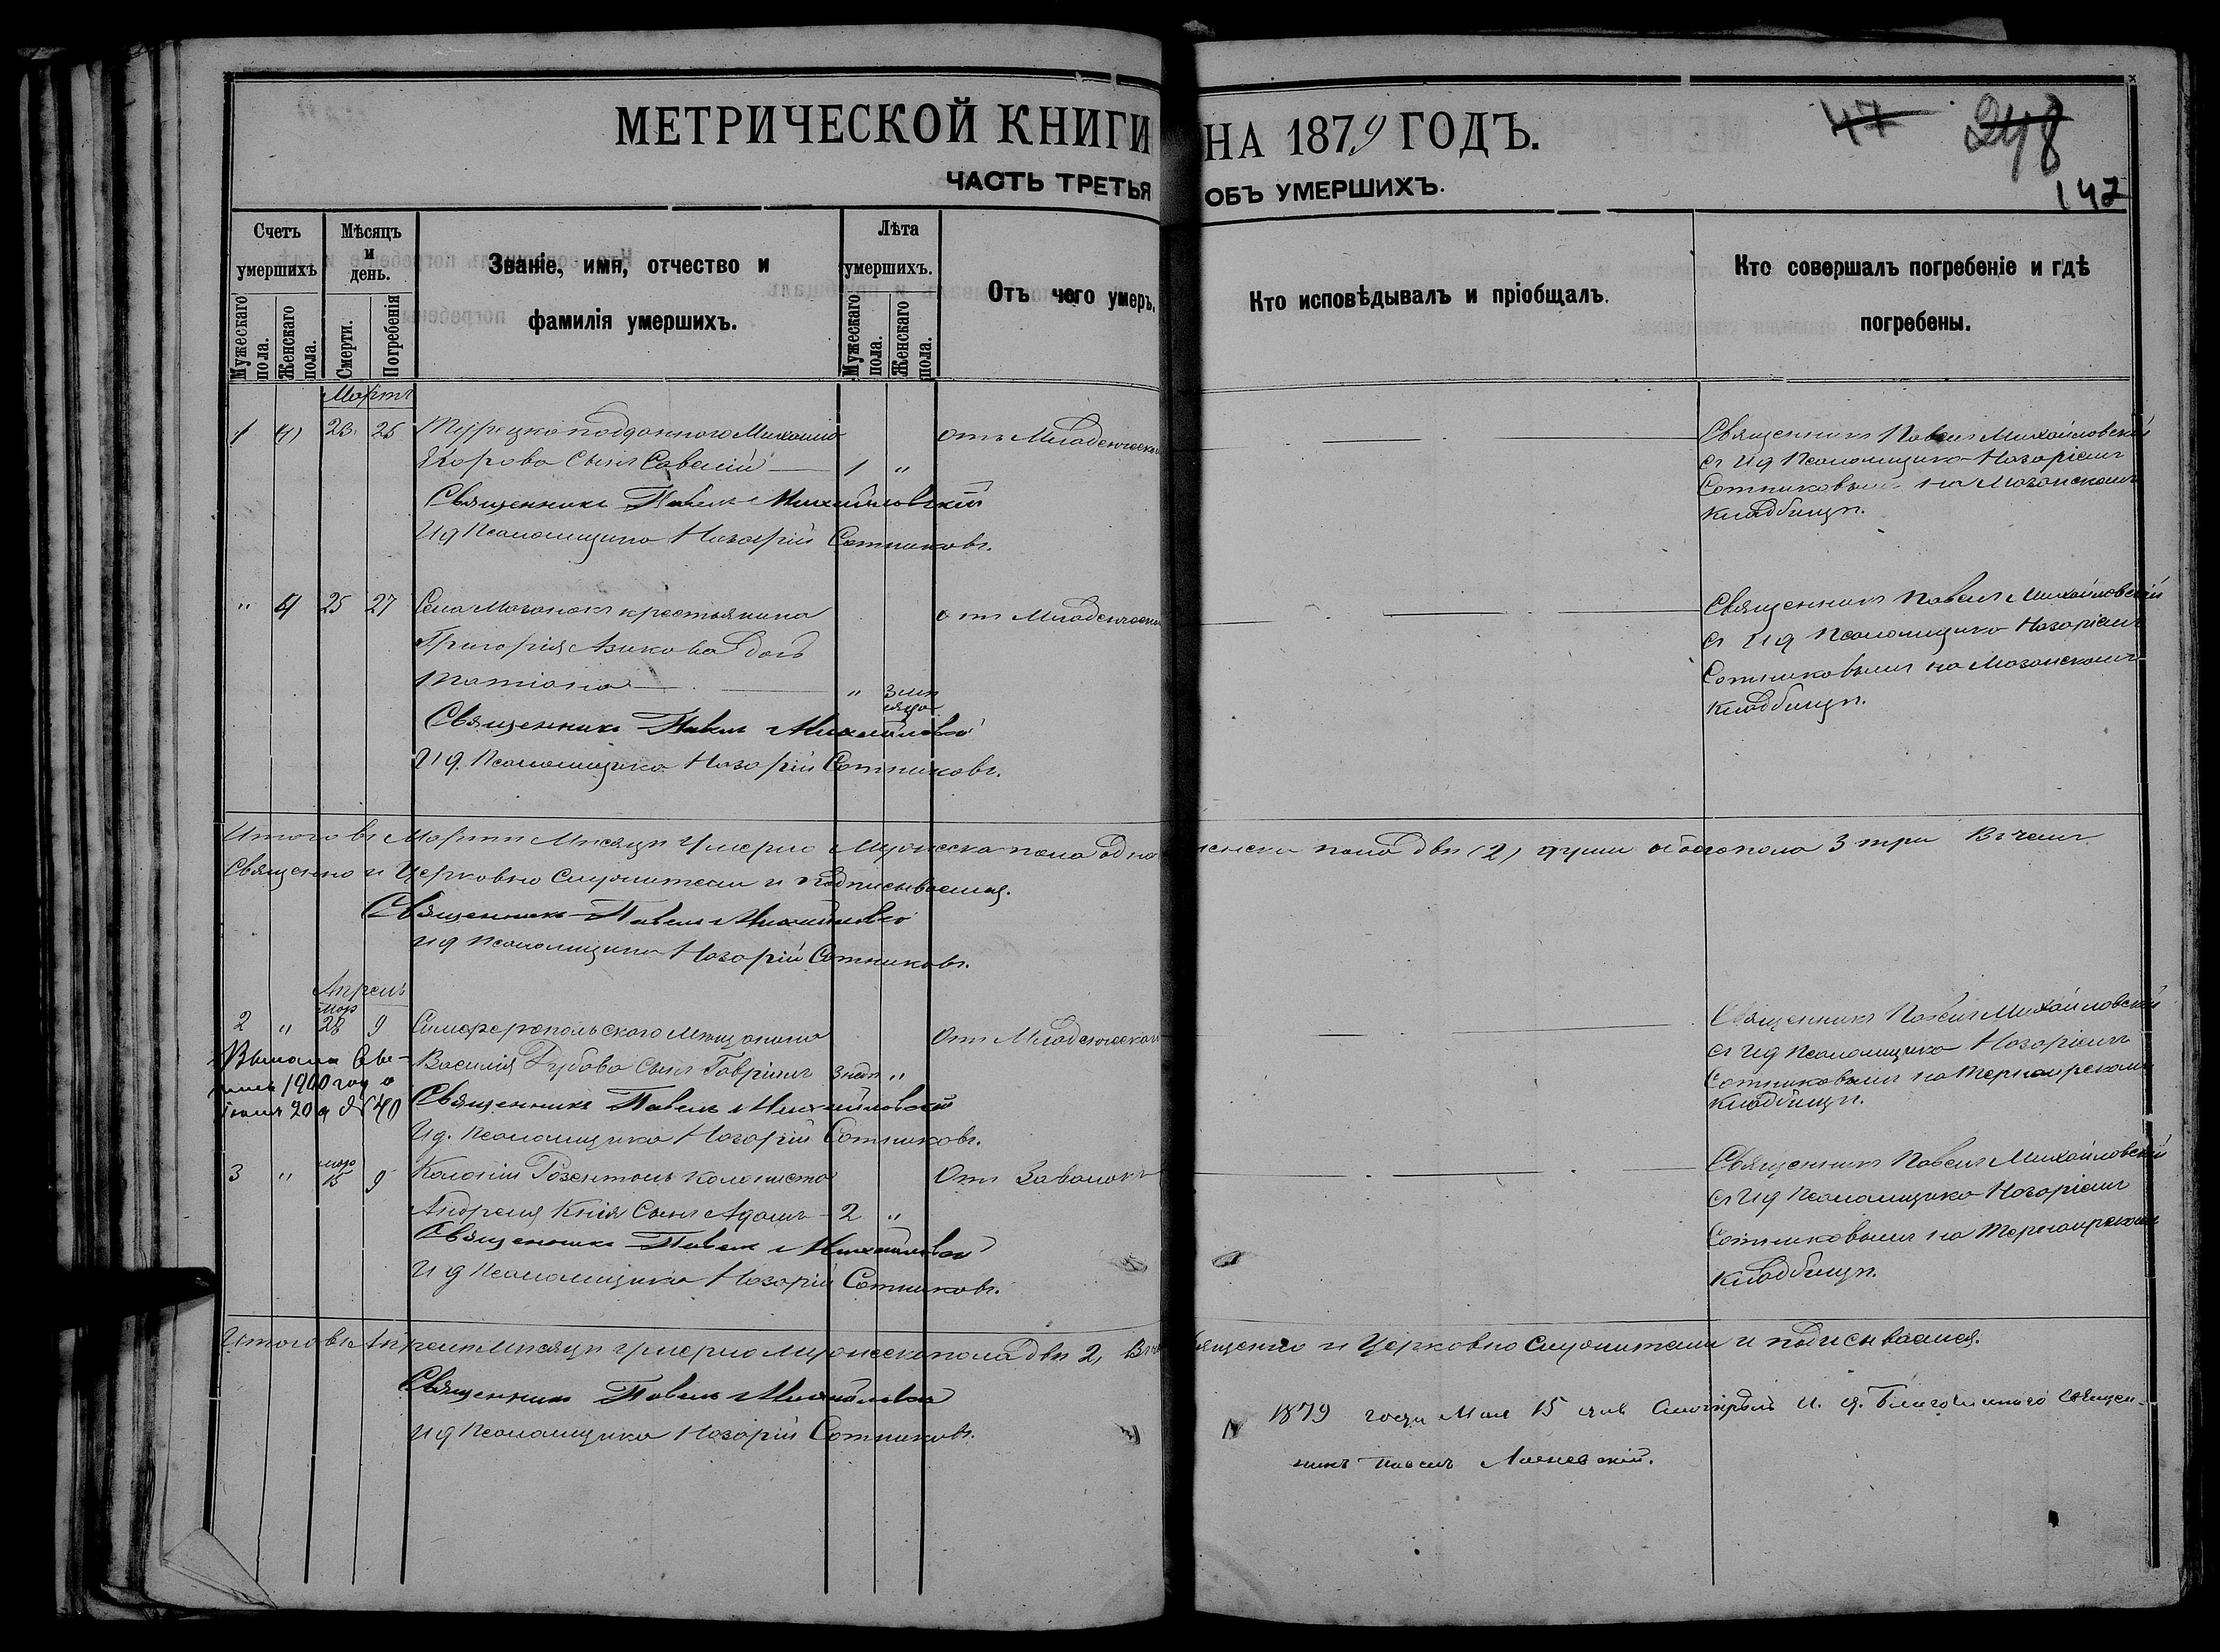 МЕТРИЧЕСКОЙ КНИГИ НА 1879 ГОДЪ.
47 248
147
ЧАСТЬ ТРЕТЬЯ ОБЪ УМЕРШИХЪ.
Счетъ умершихъ
Мужескаго пола.
Женскаго пола.
Мѣсяцъ и день.
Смерти.
Погребенія
Званіе, имя, отчество и
фамилія умершихъ.
Лѣта умершихъ.
Мужескаго пола.
Женскаго пола.
Отъ чего умеръ.
Кто исповѣдывалъ и пріобщалъ.
Кто совершалъ погребеніе и гдѣ
погребены.
Мартъ
1 23 25 Турецко подданного Михаила отъ Младенческой
Егорова сынъ Савелій 1 "
Священникъ Павелъ Михайловскій
И д Псаломщика Назарій Сотниковъ.
Священникъ Павелъ Михайловскій
съ И д Псаломщика Назаріемъ
Сотниковымъ на Мазанскомъ
кладбищѣ.
" 4 25 27 Села Мазанокъ крестьянина отъ Младенческой
Григорія Азикова дочь
Татіана " 3 мѣ
сяца
Священникъ Павелъ Михайловскій
И д. Псаломщика Назарій Сотниковъ.
Священникъ Павелъ Михайловскій
съ И д Псаломщика Назаріемъ
Сотниковымъ на Мазанскомъ
кладбищѣ.
Итого въ Мартѣ Мѣсяцѣ умерло Мужеска пола одна женска пола двѣ (2) души обоего пола 3 три Въ чемъ
Священно и Церковно Служители и подписываемся.
Священникъ Павелъ Михайловскій
и д Псаломщика Назарій Сотниковъ.
Апрель
Мар
2 " 28 9 Симферопольскаго Мещанина отъ Младенческой
Василія Дубова сынъ Гавріилъ 3 нед "
Священникъ Павелъ Михайловскій
И д. Псаломщика Назарій Сотниковъ.
1900 года
20 д № 40
Священникъ Павелъ Михайловскій
съ И д Псаломщика Назаріемъ
Сотниковымъ на
кладбищѣ.
мар
3 " 15 9 Колоніи Розенталь колониста Отъ Завалокъ
Андрея сынъ Адамъ 2 "
Священникъ Павелъ Михайловскій
И д Псаломщика Назарій Сотниковъ.
Священникъ Павелъ Михайловскій
съ И д Псаломщика Назаріемъ
Сотниковымъ на
кладбищѣ.
Итого въ Апрелѣ Мѣсяцѣ умерло Мужеска пола двѣ 2, В Священно и Церковно Служители и подписываемся.
Священникъ Павелъ Михайловскій
и д Псаломщика Назарій Сотниковъ.
1879 года Мая 15 дня Смотрѣлъ И. д. Благочиннаго Священ-
никъ Павелъ